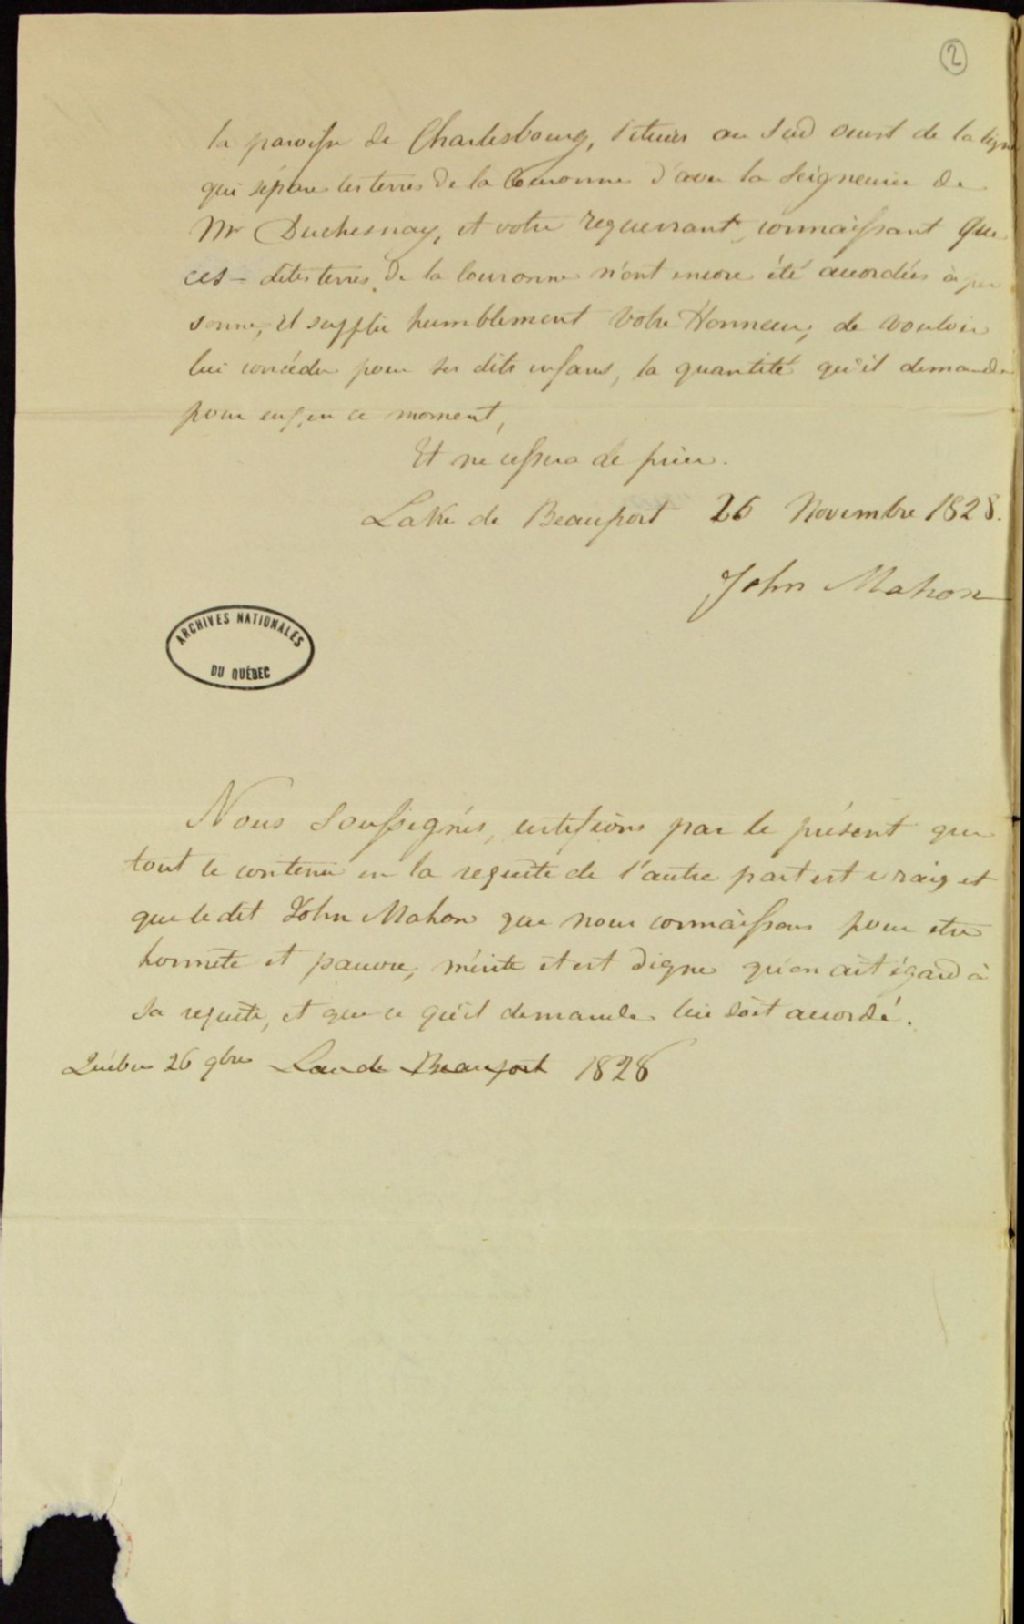 2
la paroisse de Charlesbourg, situées au Sud ouest de la ligne
qui sépare les terres de la Couronne d'avec la Seigneurie de
Mr Duchesnay, et votre requerrant, connaissant que
ces dites terres de la Couronne n'ont encore été accordées à per
sonne, il supplie humblement Votre Honneur, de vouloir
lui concéder pour ses dits enfans, la quantité qu'il demande
pour eux, en ce moment,
Et ne cessera de prier.
Lake de Beauport 26 Novembre 1828.
John Mahon
ARCHIVES NATIONALES
DU QUÉBEC
Nous Soussignés, certifions par le présent que
tout le contenu en la requête de l'autre part est vraiy et
que le dit John Mahon que nous connaissons pour etre
honnête et pauvre, mérite et est digne qu'on ait égard à
sa requête, et que ce qu'il demande lui soit accordé.
Québec 26 9bre Lac de Beauport 1828